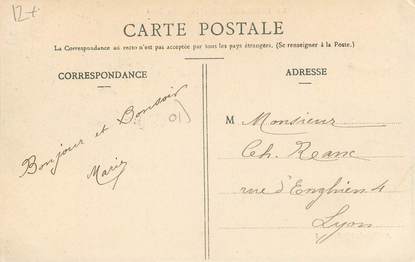 12+
CARTE POSTALE
La Correspondance au recto n'est pas acceptée par tous les pays étrangers. (Se renseigner à la Poste.)
CORRESPONDANCE
Bonjour et Bonsoir
Marie
01
ADRESSE
M Monsieur
Ch.
rue d'Enghien 4
Lyon